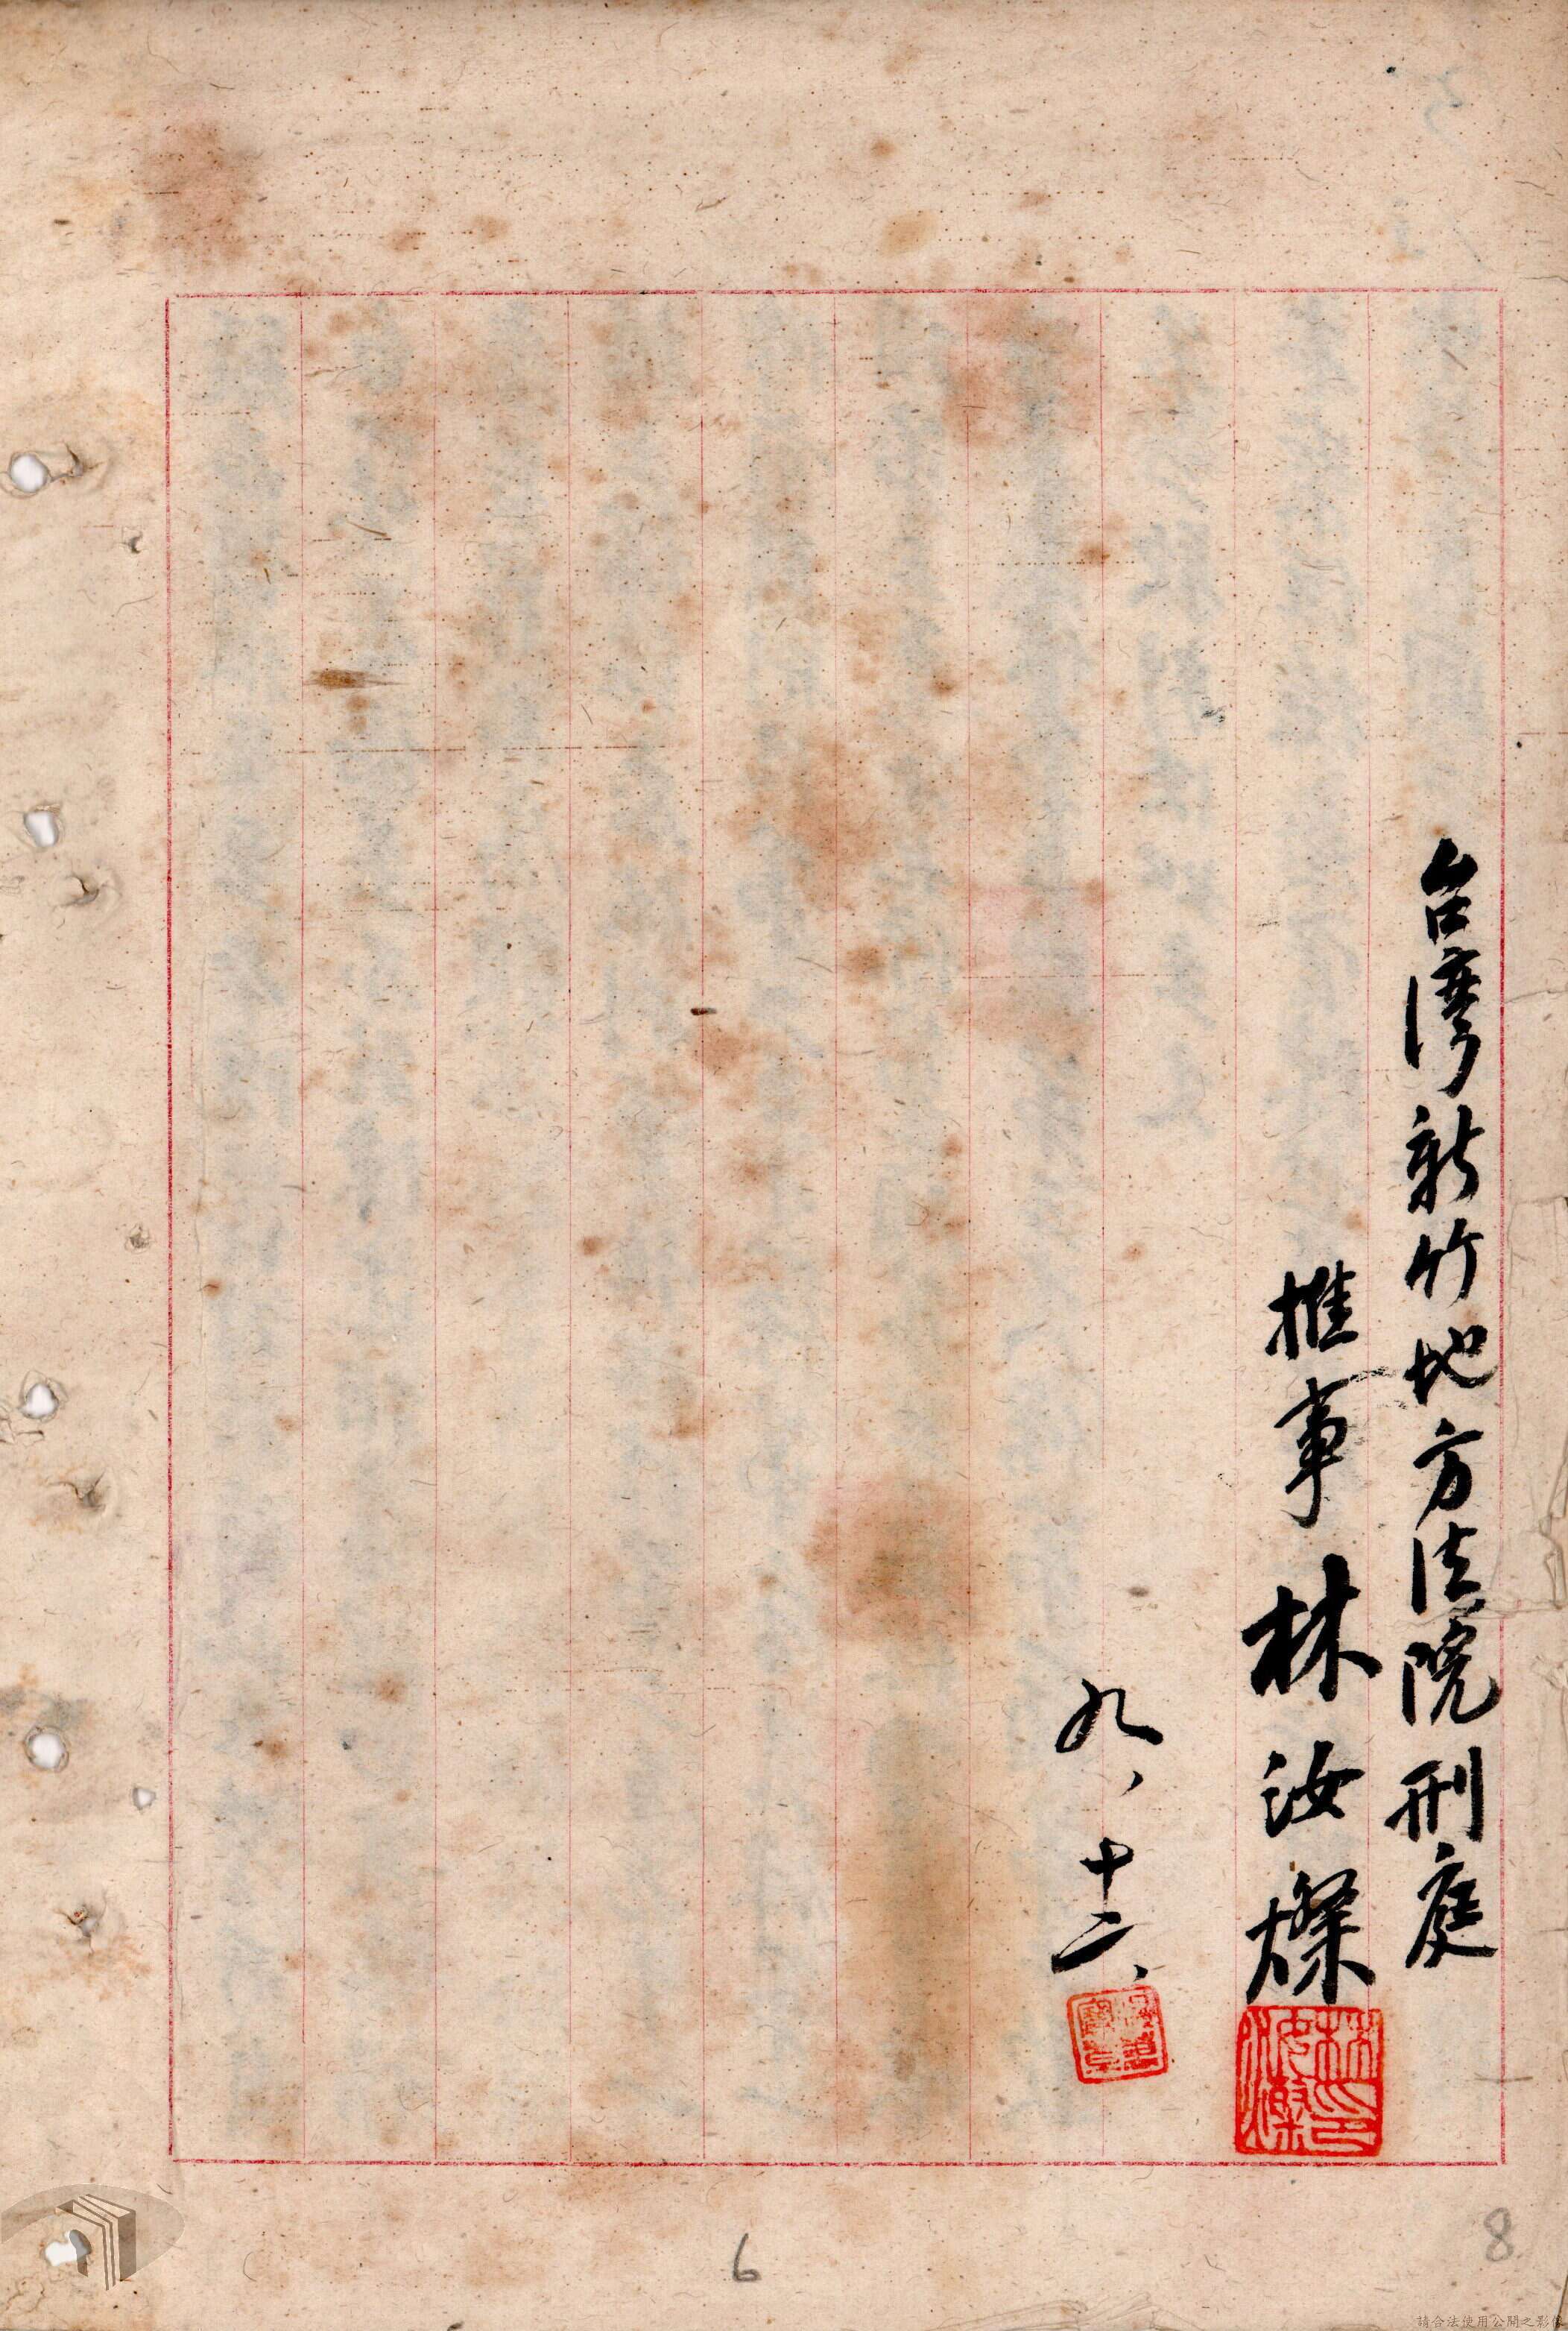 台灣新竹地方法院刑庭
推事林汝燦
林印汝燦
九、十二、
6
8
請合法使用公開之影像